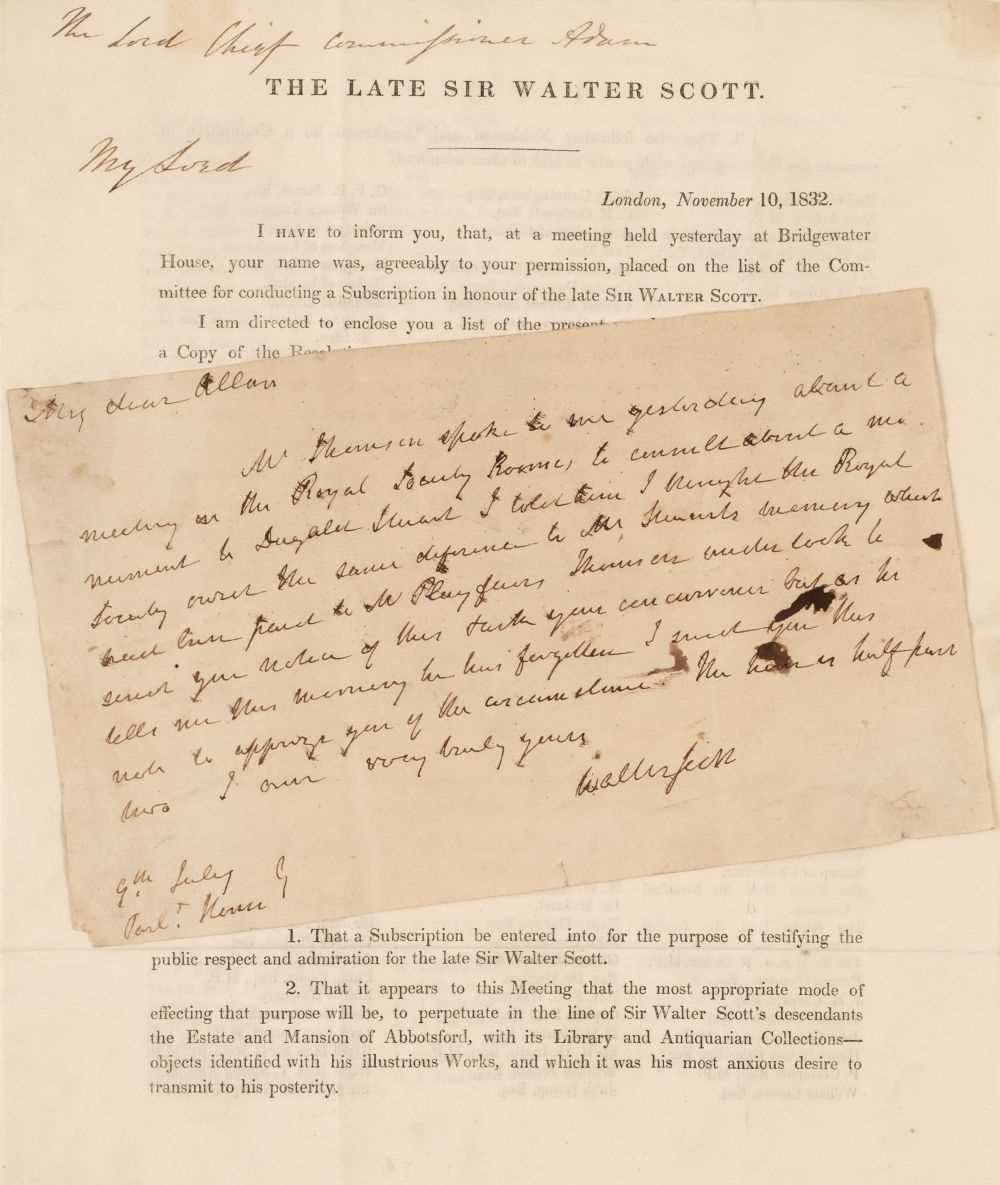 The Lord Chief Commissioner Adam
THE LATE SIR WALTER SCOTT.
My Lord
London, November 10, 1832.
I HAVE to inform you, that, at a meeting held yesterday at Bridgewater
House, your name was, agreeably to your permission, placed on the list of the Com-
mittee for conducting a Subscription in honour of the late SIR WALTER SCOTT.
I am directed to enclose you a list of the present
a Copy of the
My dear Allan
Mr Thomson spoke to me yesterday about a
meeting in the Royal Society Rooms, to consult about a mo
nument to Dugald Stuart I told him I thought the Royal
Society owed the same deference to Mr Stewarts memory which
had been paid to Mr Playfairs Thomson undertook to
send you notice of this your concurrence but as he
tells me this morning he has forgotten I send you this
note to apprize you of the circumstance. The hour is half past
two I am very truly yours
Walter Scott
9th July
Parlt. House
1. That a Subscription be entered into for the purpose of testifying the
public respect and admiration for the late Sir Walter Scott.
2. That it appears to this Meeting that the most appropriate mode of
effecting that purpose will be, to perpetuate in the line of Sir Walter Scott's descendants
the Estate and Mansion of Abbotsford, with its Library and Antiquarian Collections—
objects identified with his illustrious Works, and which it was his most anxious desire to
transmit to his posterity.